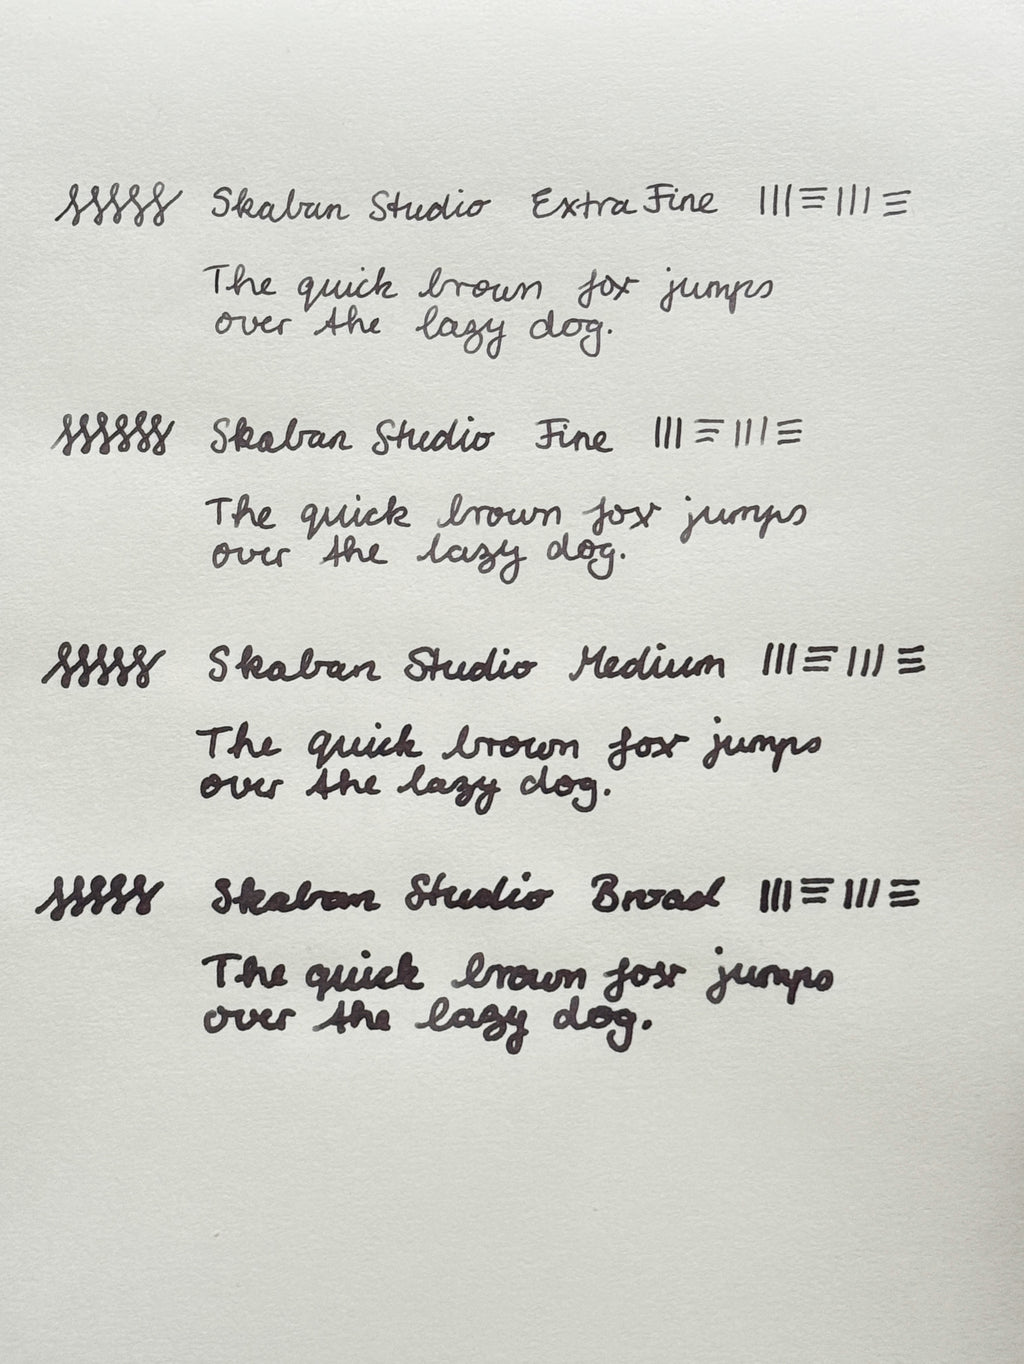 Skaban Studio Extra Fine
The quick brown fox jumps
over the lazy dog.
Skaban Studio Fine
The quick brown fox jumps
over the lazy dog.
Skaban Studio Medium
The quick brown fox jumps
over the lazy dog.
Skaban Studio Broad
The quick brown fox jumps
over the lazy dog.